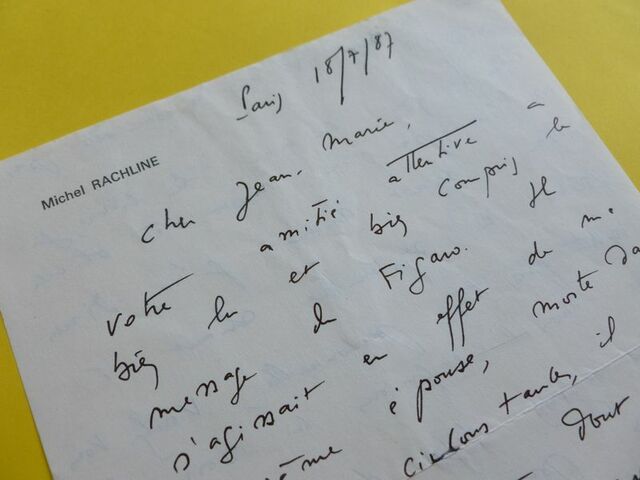 Paris 18/7/87
Michel RACHLINE
Cher Jean-Marie,
votre amitié attentive a
bien lu et bien compris le
message du Figaro. Il
s'agissait en effet de
ème épouse, morte da
circonstances, il
dont